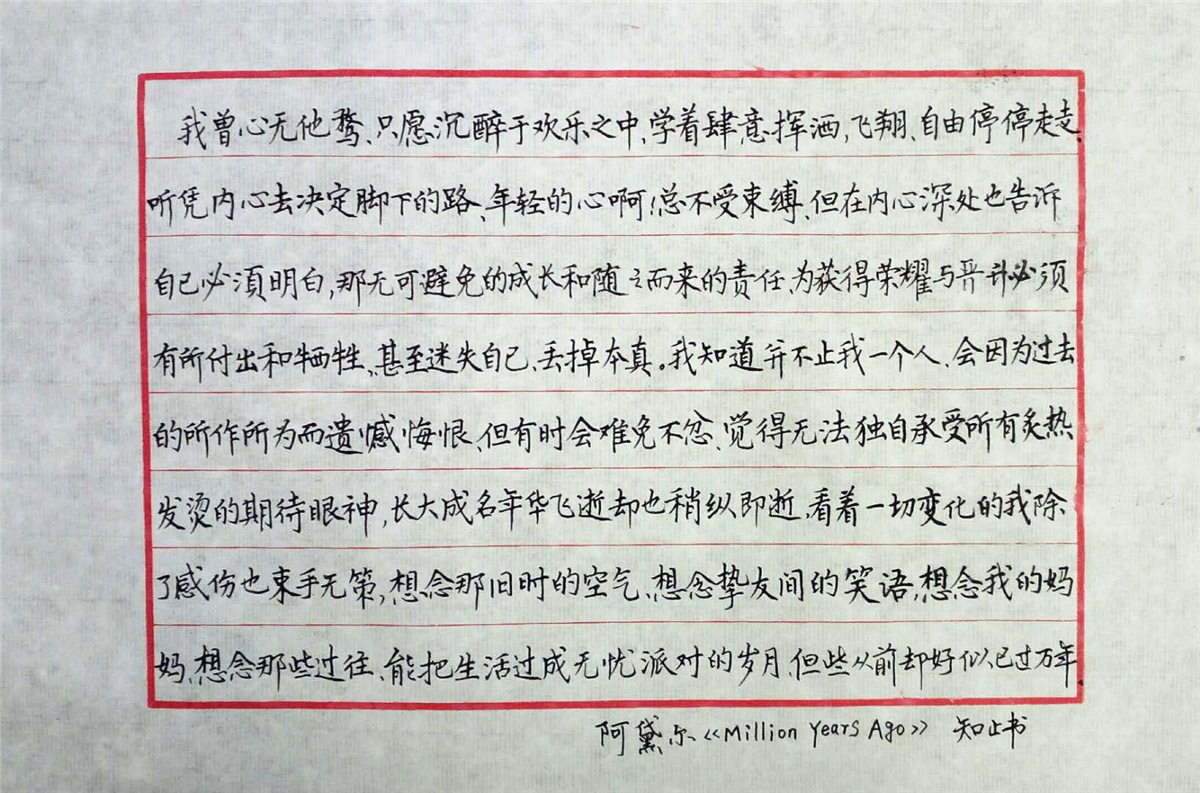 我曾心无他鹜、只愿沉醉于欢乐之中、学着肆意挥洒,飞翔、自由停停走走、
听凭内心去决定脚下的路、年轻的心啊!总不受束缚、但在内心深处也告诉
自己必须明白,那无可避免的成长和随之而来的责任、为获得荣耀与晋升必须
有所付出和牺牲、甚至迷失自己、丢掉本真。我知道并不止我一个人、会因为过去
的所作所为而遗憾悔恨、但有时会难免不忿、觉得无法独自承受所有炙热
发烫的期待眼神,长大成名年华飞逝却也稍纵即逝、看着一切变化的我除
了感伤也束手无策,想念那旧时的空气、想念挚友间的笑语,想念我的妈
妈、想念那些过往、能把生活过成无忧派对的岁月、但些从前却好似已过万年
阿黛尔《Million Years Ago》 知止书